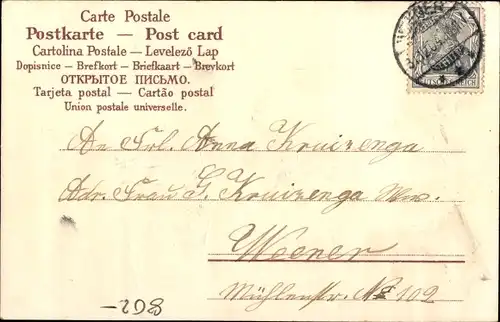 Carte Postale
Postkarte — Post card
Cartolina Postale — Levelező Lap
Dopisnice — Brefkort — Briefkaart — Brevkort
ОТКРЫТОЕ ПИСЬМО.
Tarjeta postal — Cartão postal
Union postale universelle.
An Frl. Anna Kruizenga
Adr. Frau G. Kruizenga Wwe.
Weener
Mühlenstr. No 102
-208